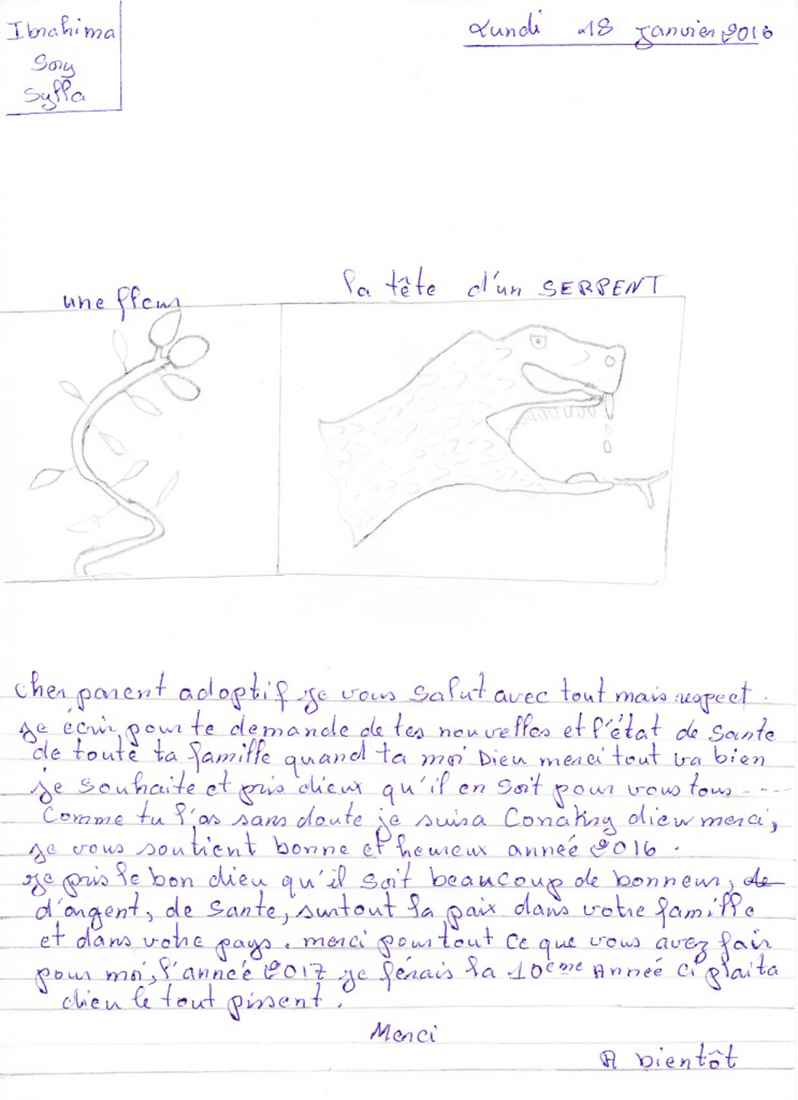 Ibrahima
Sory
Sylla
Lundi 18 Janvier 2016
une fleur
la tête d'un SERPENT
cher parent adoptif je vous salut avec tout mais respect.
Je écrir pour te demande de tes nouvelles et l'état de Sante
de toute ta famille quand ta moi Dieu merci tout va bien
Je souhaite et pris dieux qu'il en soit pour vous tous ----
Comme tu l'as sans doute je suisa Conakry dieu merci,
Je vous soutient bonne et heureux année 2016.
Je pris le bon dieu qu'il soit beaucoup de bonneur, de
d'argent, de Sante, surtout la paix dans votre famille
et dans votre pays. merci pour tout ce que vous avez fair
pour moi, l'année 2017 je ferais la 10eme Année ci plaita
dieu le tout pissent.
Merci
A bientôt